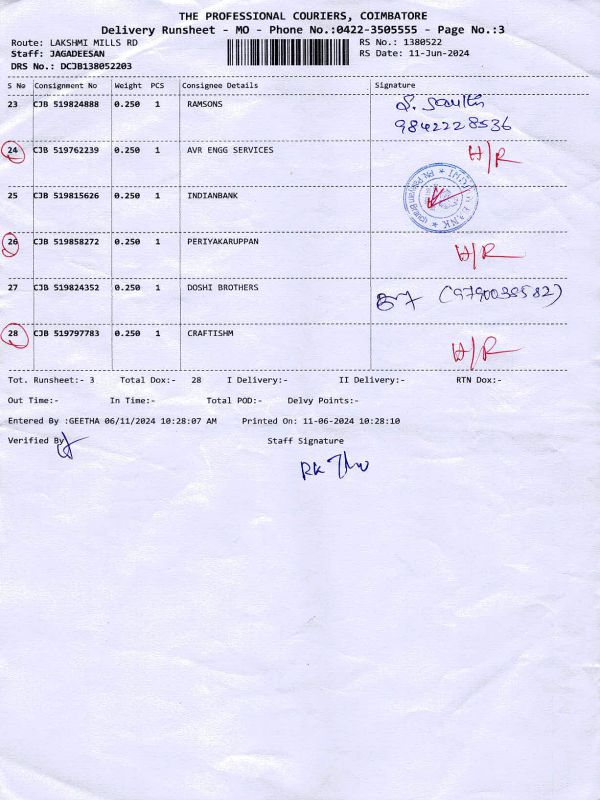 THE PROFESSIONAL COURIERS, COIMBATORE
Delivery Runsheet - MO - Phone No.:0422-3505555 - Page No.:3
Route: LAKSHMI MILLS RD RS No.: 1380522
Staff: JAGADEESAN RS Date: 11-Jun-2024
DRS No.: DCJB138052203
S No Consignment No Weight PCS Consignee Details Signature
23 CJB 519824888 0.250 1 RAMSONS
9842228536
24 CJB 519762239 0.250 1 AVR ENGG SERVICES H/R
25 CJB 519815626 0.250 1 INDIANBANK
26 CJB 519858272 0.250 1 PERIYAKARUPPAN H/R
27 CJB 519824352 0.250 1 DOSHI BROTHERS (9790038582)
28 CJB 519797783 0.250 1 CRAFTISHM H/R
Tot. Runsheet:- 3 Total Dox:- 28 I Delivery:- II Delivery:- RTN Dox:-
Out Time:- In Time:- Total POD:- Delvy Points:-
Entered By :GEETHA 06/11/2024 10:28:07 AM Printed On: 11-06-2024 10:28:10
Verified By Staff Signature